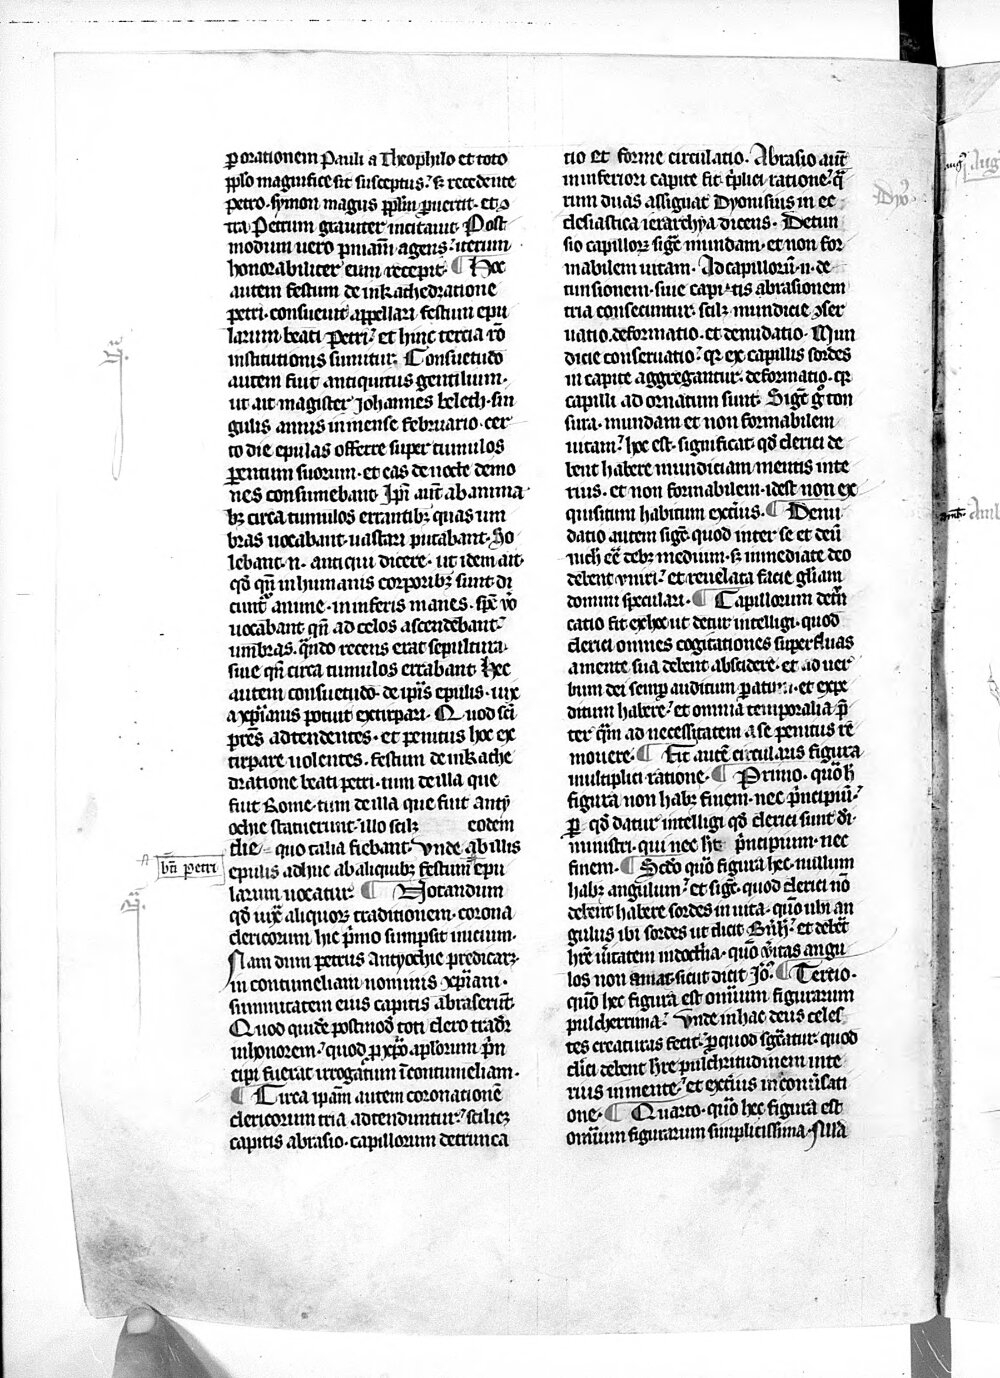 ꝑ orationem Pauli a Theophilo et toto
pp̃lo magnifice sit susceptus. s̃ recedente
petro. symon magus pp̃lm ꝑuertit. et ꝯ
tra Petrum grauiter incitauit. Post
modum uero pniam̃ agens. iterum
honorabiliter eum recepit. ¶ Hec
autem festum de inkathedratione
petri. consueuit appellari festum epu
larum beati Petri. et hinc tercia rõ
institutionis sumitur. Consuetudo
autem fuit antiquitus gentilium.
ut ait magister Johannes beleth. sin
gulis annis in mense februario. cer
to die epulas offerre super tumulos
ꝑentum suorum. et eas de nocte demo
nes consumebant. Ipĩ aut̃ ab anima
bꝫ circa tumulos errantibꝫ quas um
bras uocabant. uastari putabant. So
lebant .n. antiqui dicere. ut idem ait.
qd̃ qñ in humanis corporibꝫ sunt di
cunt̃ anime. in inferis manes. spẽ ṽo
uocabant qñ ad celos ascendebant.
umbras. quñdo recens erat sepultura.
siue qñ circa tumulos errabant. Hec
autem consuetudo de ip̃is epulis. uix
a xp̃ianis potuit extirpari. Quod scĩ
pr̃es adtendentes. et penitus hoc ex
tirpare uolentes. festum de inkathe
dratione beati petri. tum de illa que
fuit Rome. tum de illa que fuit anty
ochie statuerunt. illo scilꝫ eodem
die quo talia fiebant. Vnde ab illis
bñ petri
epulis adhuc ab aliquibꝫ festum epu
larum uocatur. ¶ Notandum
qd̃ iux̃ aliquorꝫ traditionem. corona
clericorum hic p̃mo sumpsit inicium.
Nam dum petrus Antyochie predicarꝫ.
in contumeliam nominis xp̃iani.
summitatem eius capitis abraserũt.
Quod quidẽ postmod̃ toti clero tradr̃
in honorem. quod ꝑ xp̃o aplorum p̃n
cipi fuerat irrogatum ĩ contumeliam.
¶ Circa ipam̃ autem coronationẽ
clericorum tria adtenduntur. scilicꝫ
capitis abrasio. capillorum detrunca
tio et forme circulatio. Abrasio aut̃
in inferiori capite fit t̃plici ratione. q̃
rum duas assignat Dyonisius in ec
clesiastica ierarchya dicens. Detun
sio capillorꝫ sig̃t mundam. et non for
mabilem uitam. Ad capillorũ .n. de
tunsionem. siue capitis abrasionem
tria consecuntur. scilꝫ mundicie ꝯser
uatio. deformatio. et denudatio. Mun
dicie conseruatio. qr̃ ex capillis sordes
in capite aggregantur. deformatio. qr̃
capilli ad ornatum sunt. Sig̃t g̃ ton
sura. mundam et non formabilem
uitam. hoc est. significat. qd̃ clerici de
bent habere mundiciam mentis inte
rius. et non formabilem. idest non ex
quisitum habitum exteĩus. ¶ Denu
datio autem sig̃t. quod inter se et deũ
nich̃ eẽ debꝫ medium. s̃ immediate deo
debent vniri. et reuelata facie gl̃iam
domini speculari. ¶ Capillorum detr̃n
catio fit ex hoc ut detur intelligi. quod
clerici omnes cogitationes superfluas
a mente sua debent abscidere. et ad uer
bum dei semꝑ auditum ꝑatum. et expe
ditum habere. et omnia temporalia p̃
ter qm̃ ad necessitatem a se penitus re
mouere. ¶ Fit autẽ circularis figura
multiplici ratione. ¶ Primo. quõ h̃
figura non habꝫ finem. nec p̃ncipiũ.
ꝑ qd̃ datur intelligi qd̃ clerici sunt dĩ
ministri. qui nec ht̃ p̃ncipium. nec
finem. ¶ Scd̃o quõ figura hec nullum
habꝫ angulum. et sig̃t. quod clerici nõ
debent habere sordes in uita. quõ ubi an
gulus ibi sordes ut dicit Bñh̃. et debẽt
hr̃e ũitatem in doct̃na. quõ ṽitas angu
los non amat. sicut dicit Jõ. ¶ Tertio.
quõ hec figura est omĩum figurarum
pulcherrima. Vnde in hac deus celes
tes creaturas fecit. ꝑ quod sĩg̃atur. quod
cl̃ici debent hr̃e pulchritudinem inte
rius in mente. et exteĩus in conũsati
one. ¶ Quarto. quõ hec figura est
omĩum figurarum simplicissima. Nulla